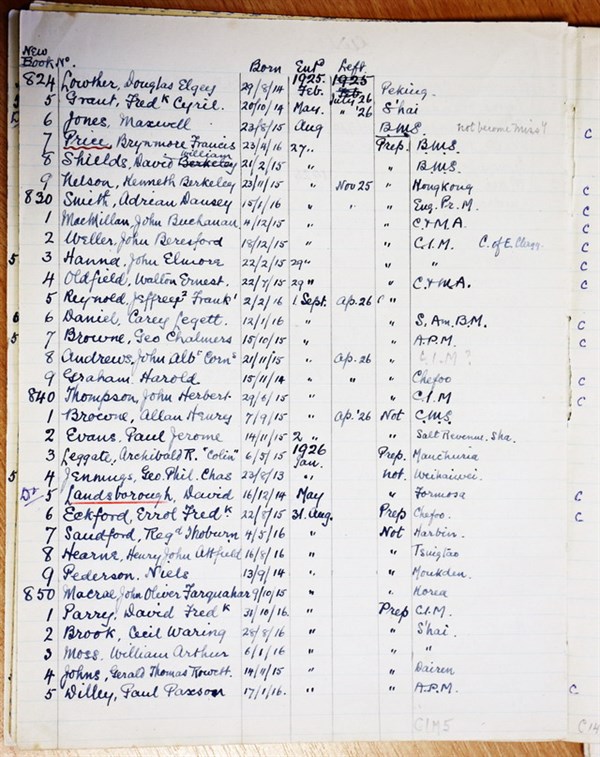 New
Book No. Born Ent^d Left
1925. 1925
824 Lowther, Douglas Elgey 29/8/14 Feb. Feb. Peking.
5 5 Grant, Fred^k Cyril. 20/10/14 May. July '26 S'hai
6 Jones, Maxwell 23/8/15 Aug " '26 B.M.S. not become Miss^y C
7 Price Brynmore Francis 23/4/16 27 " Prep. B.M.S.
8 Shields, David William Berkeley 21/2/15 " " B.M.S. C
9 Nelson, Kenneth Berkeley 23/11/15 " Nov 25 " Hongkong C
830 Smith, Adrian Dansey 15/1/16 " " " Eng. Pr. M. C
1 MacMillan, John Buchanan 4/12/15 " " C.&M.A. C
2 Weller, John Beresford 18/12/15 " " C.I.M. C. of E. Clergy. C
5 3 Hanna, John Elmore 22/2/15 29 " " " C
4 Oldfield, Walton Ernest. 22/7/15 29 " " C.&M.A. C
5 Reynold, Jeffrey Frank 2/2/16 1 Sept. Ap. 26 "
6 6 Daniel, Carey Legett. 12/1/16 " " S. Am. B.M. C
5 7 Browne, Geo Chalmers 15/10/15 " " A.P.M. C
8 Andrews, John Alb^t Corn^s 21/11/15 " Ap. 26 " C.I.M?
9 Graham. Harold 15/11/14 " " " Chefoo C
840 Thompson, John Herbert. 29/6/15 " " C.I.M C
1 Browne, Allan Henry 7/9/15 " Ap. '26 Not C.M.S.
2 Evans. Paul Jerome 14/11/15 2 " " Salt Revenue. Sha.
1926
3 Leggate, Archibald R. "Colin" 6/5/15 Jan. Prep. Manchuria
5 4 Jennings, Geo. Phil. Chas 23/8/13 " not. Weihaiwei.
Dr 5 Landsborough, David 16/12/14 May " Formosa C
6 Eckford, Errol Fred^k 22/8/15 31. Aug. Prep Chefoo. C
7 Sandford, Reg^d Thoburn 4/5/16 " Not Harbin.
8 Hearne, Henry John Attfield 16/8/16 " " Tsingtao
9 Pederson. Niels 13/9/14 " " Moukden.
850 Macrae, John Oliver Farquahar 9/10/15 " " Korea
1 Parry. David Fred^k 31/10/16. " Prep C.I.M.
2 Brook, Cecil Waring 28/8/16 " " S'hai.
3 Moss. William Arthur 6/1/16 " " "
4 Johns, Gerald Thomas Rowett. 14/11/15 " " Dairen
5 Dilley, Paul Paxson 17/1/16. " " A.P.M. C
CIM5 C14